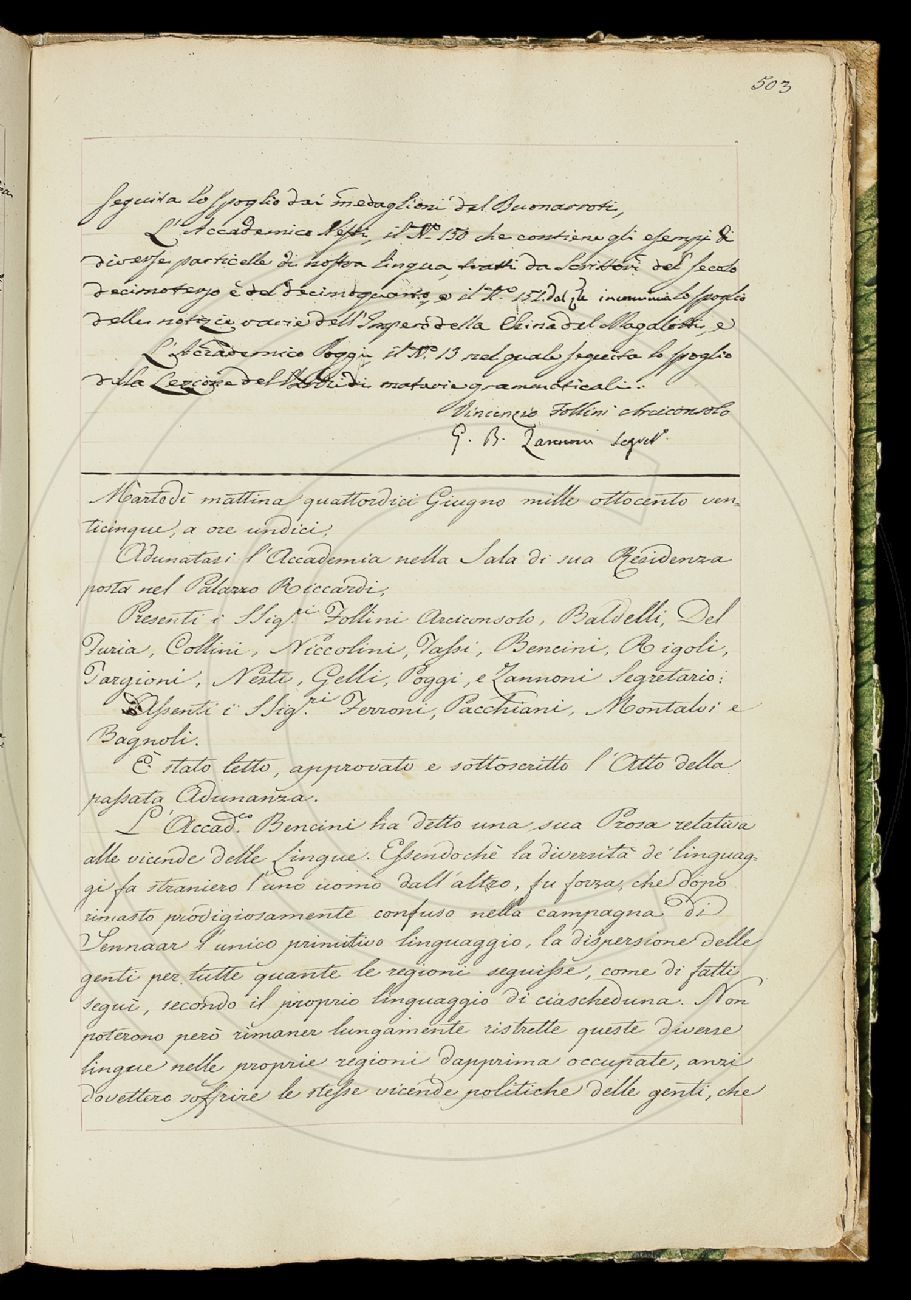 503
seguita lo spoglio dai medaglioni del Buonarroti,
L'Accademico Nesti, il N.º 150 che contiene gli esempj di
diverse particelle di nostra lingua, tratti da Scrittori del secolo
decimoterzo e del decimoquarto, e il N.º 151 dal q.le incomincia lo spoglio
delle notizie varie dell'Impero della China del Magalotti, e
L'Accademico Poggi, il N.º 13 nel quale seguita lo spoglio
della Lezione del di materie grammaticali.
Vincenzio Follini Arciconsolo
G. B. Zannoni Segret.º
Martedì mattina quattordici Giugno mille ottocento ven-
ticinque, a ore undici,
Adunatasi l'Accademia nella Sala di sua Residenza
posta nel Palazzo Riccardi,
Presenti i SSig.ri Follini Arciconsolo, Baldelli, Del
Furia, Collini, Niccolini, Tassi, Bencini, Rigoli,
Targioni, Nesti, Gelli, Poggi, e Zannoni Segretario;
Assenti i SSig.ri Ferroni, Pacchiani, Montalvi e
Bagnoli.
È stato letto, approvato e sottoscritto l'Atto della
passata Adunanza.
L'Accad.co Bencini ha detto una sua Prosa relativa
alle vicende delle Lingue. Essendochè la diversità de' linguag-
gi fa straniero l'uno uomo dall'altro, fu forza, che dopo
rimasto prodigiosamente confuso nella campagna di
Sennaar l'unico primitivo linguaggio, la dispersione delle
genti per tutte quante le regioni seguisse, come di fatti
seguì, secondo il proprio linguaggio di ciascheduna. Non
poterono però rimaner lungamente ristrette queste diverse
lingue nelle proprie regioni dapprima occupate, anzi
dovettero soffrire le stesse vicende politiche delle genti, che